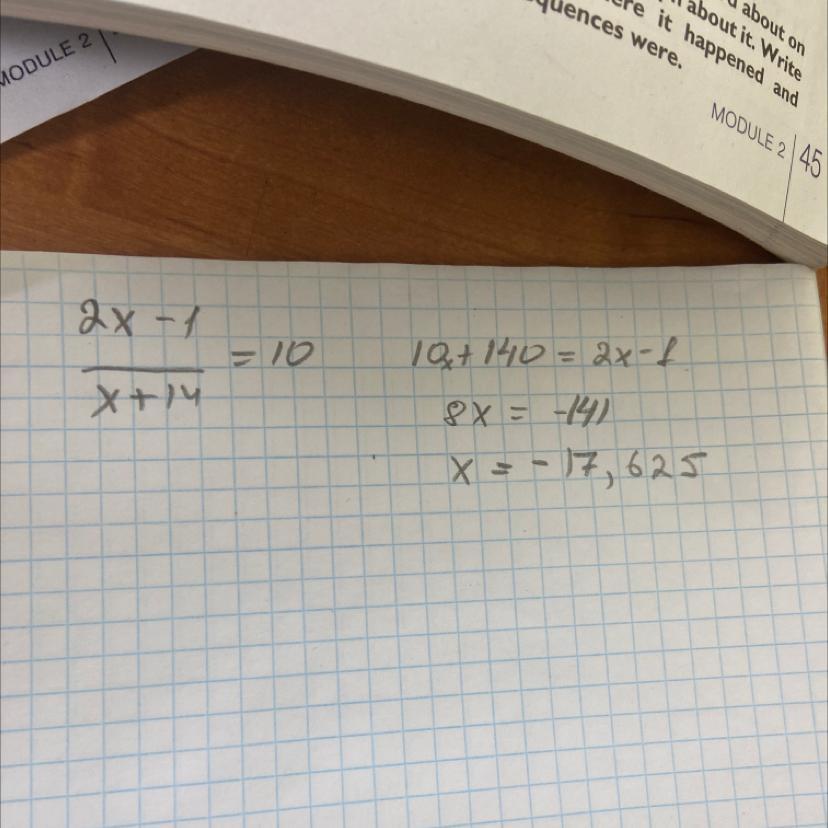 MODULE 2
d about on
about it. Write
ere it happened and
quences were.
MODULE 2 | 45
2x - 1
x + 14
= 10
10x + 140 = 2x - 1
8x = -141
x = -17,625